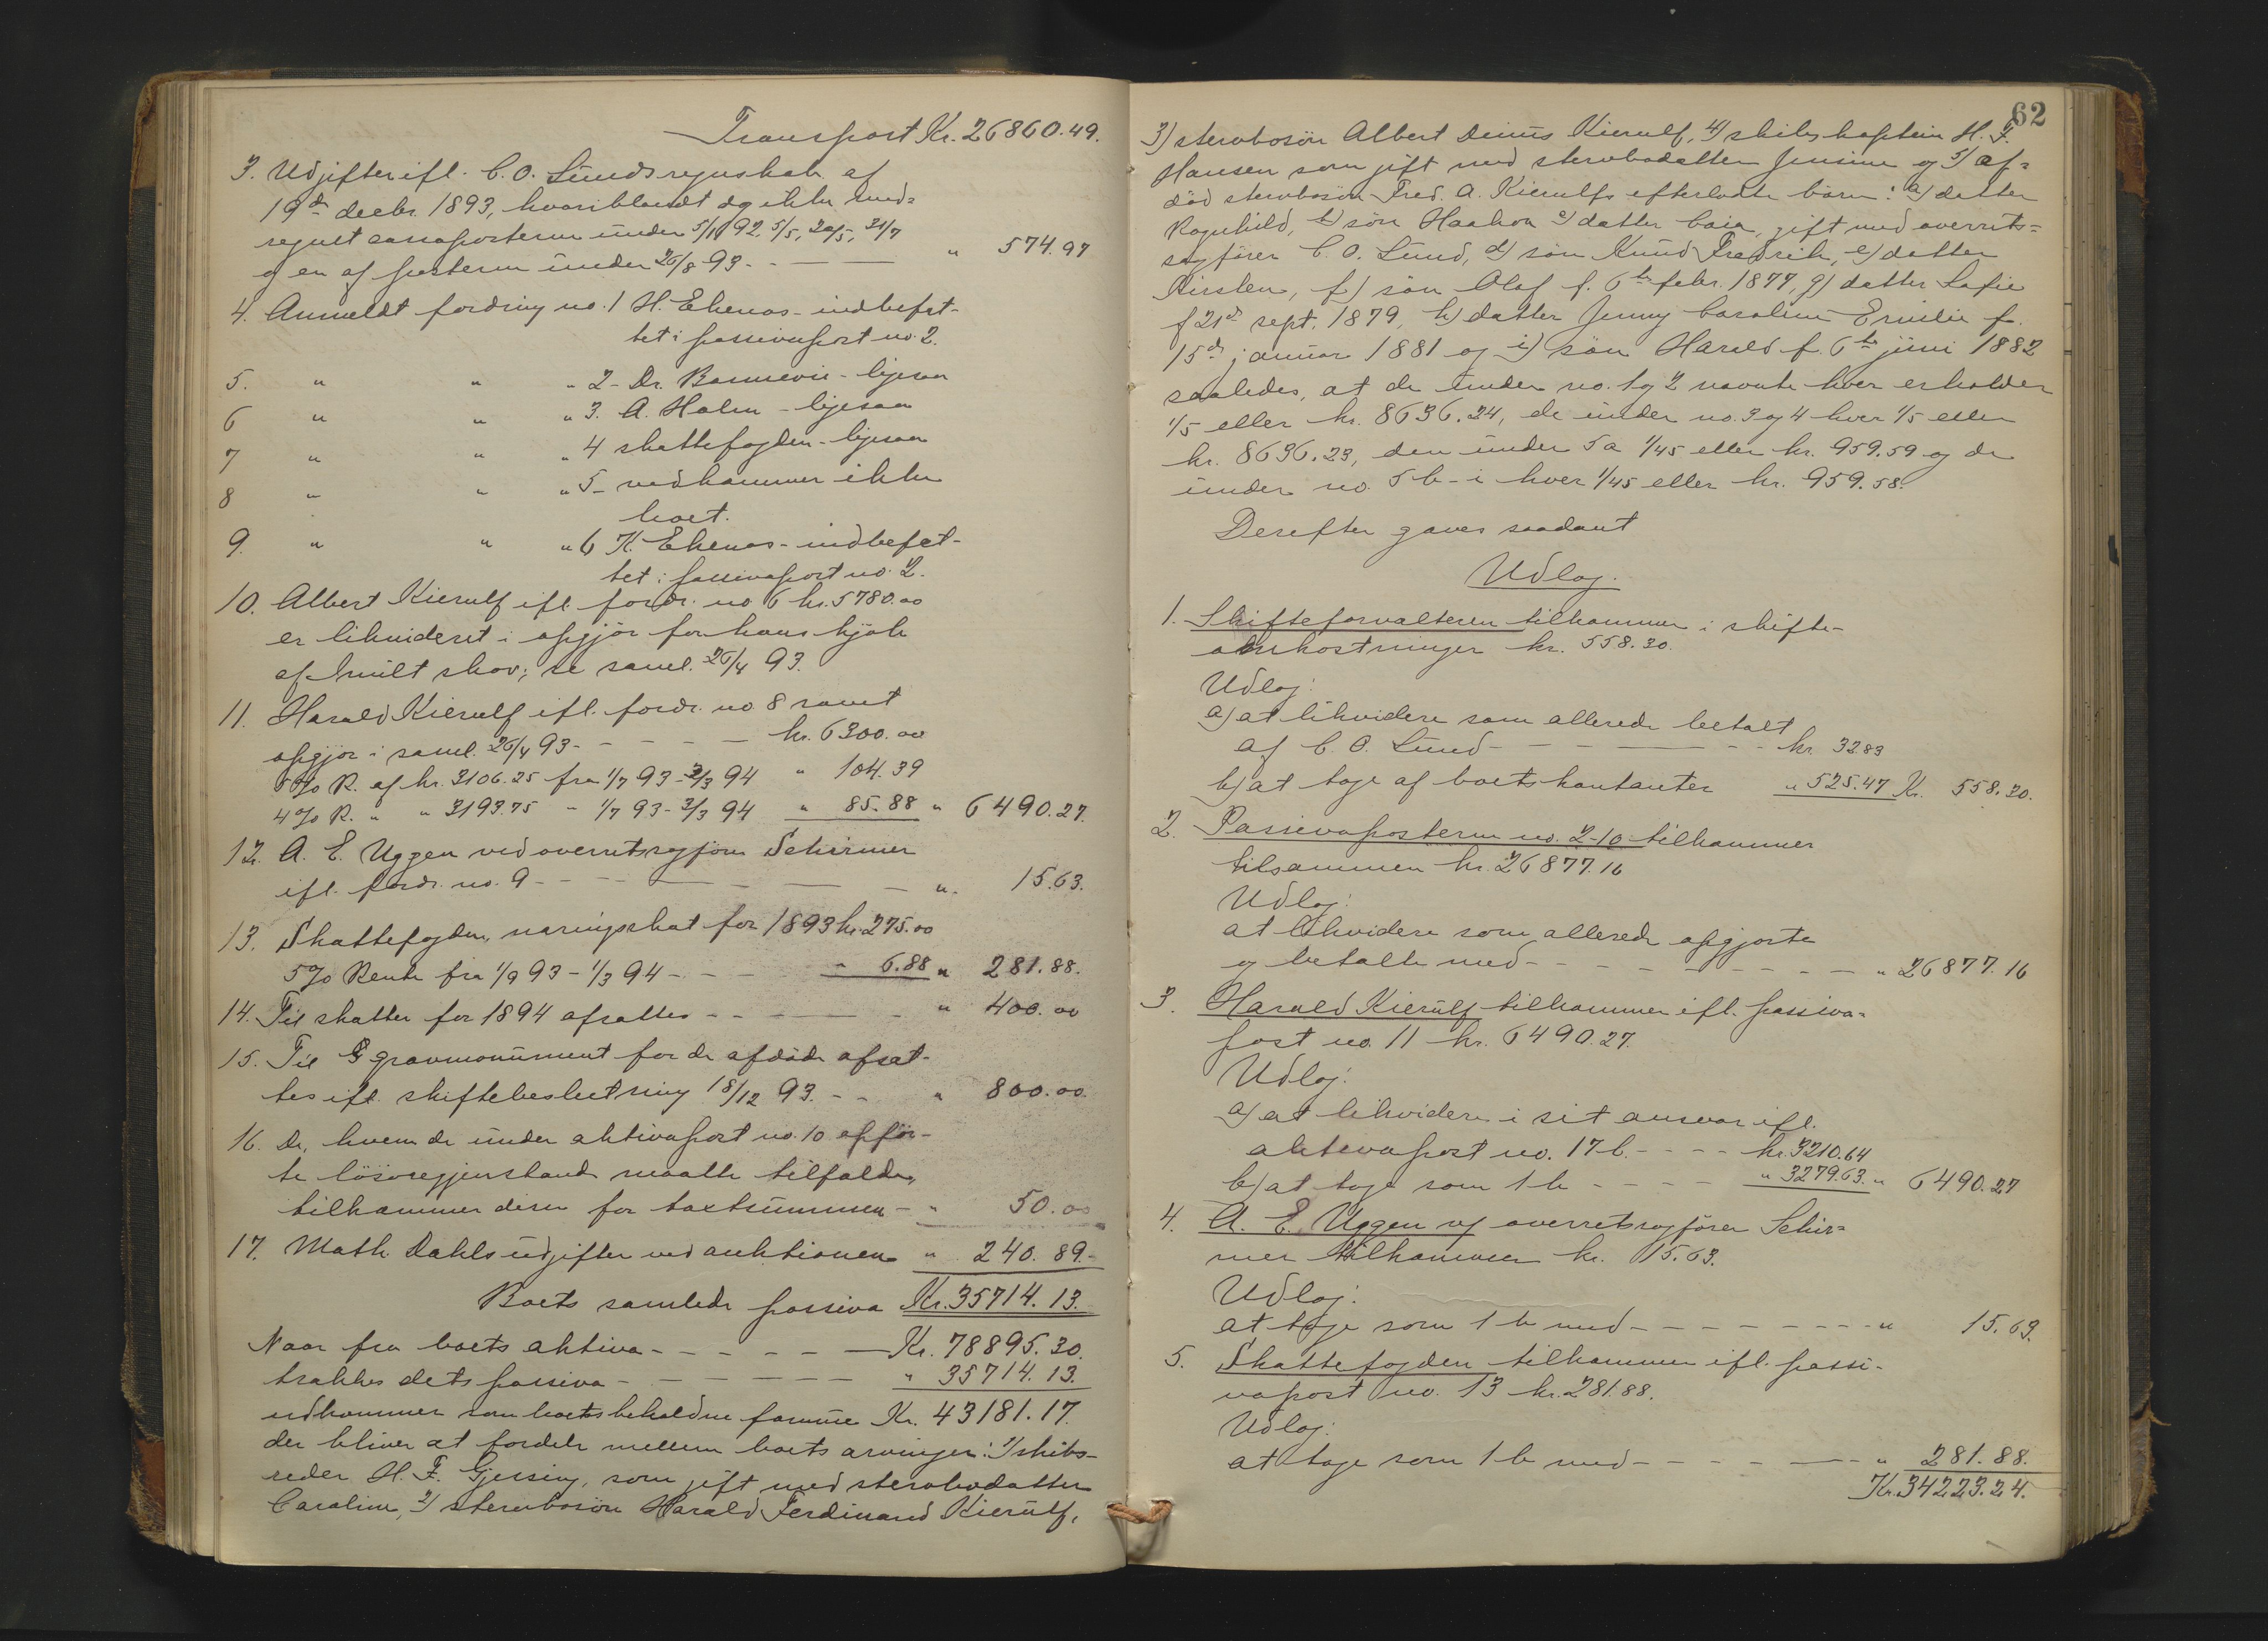 Transport Kr. 26860.49.
3. Udgifter ifl. C. O. Lunds regnskab af
19de decbr. 1893, hvoriblandt dog ikke med-
regnet cassaposterne under 5/11 92, 5/5, 20/5, 31/7
og en af posterne under 26/8 93 - - - " 574.97
4. Anmeldt fordring no. 1 H. Ekenes - indbefat-
tet i passivapost no. 2.
5. " " " 2 - Dr. Bonnevie - ligesaa
6 " " " 3. A. Holm - ligesaa
7 " " " 4 skattefogden - ligesaa
8 " " " 5 - vedkommer ikke
boet.
9. " " " 6 K. Ekenes - indbefat-
tet i passivapost no. 2.
10. Albert Kierulf ifl. fordr. no 6 kr. 5780.00
er likvideret i opgjør for hans kjøb
af Hvilt skov; se saml. 26/4 93.
11. Harald Kierulf ifl. fordr. no 8 samt
opgjør i saml. 26/4 93 - - - - - kr. 6300.00
5 % R. af kr. 3106.25 fra 1/7 93 - 3/3 94 " 104.39
4 % R. " " 3193.75 - 1/7 93 - 3/3 94 " 85.88 " 6490.27.
12. A. E. Uggen ved overretssagfører Schirmer
ifl. fordr. no. 9 - - - - - - - ". 15.63.
13. Skattefogden, næringsskat for 1893 kr. 275.00
5 % Rente fra 1/9 93 - 1/3 94 - - - " 6.88 " 281.88.
14. Til skatter for 1894 afsættes - - - - - " 400.00
15. Til gravmonument for de afdøde afsæt-
tes ifl. skiftebeslutning 18/12 93. - - " 800.00.
16. De, hvem de under aktivapost no. 10 opfør-
te løsøregjenstand maatte tilfalde,
tilkommer disse for taxtsummen - " 50.00
17. Math. Dahls udgifter ved auktionen " 240.89.-
Boets samlede passiva Kr. 35714.13.
Naar fra boets aktiva - - - - - Kr. 78895.30.
trækkes dets passiva - - - - - " 35714.13.
udkommer som boets beholdne formue Kr. 43181.17.
der bliver at fordele mellem boets arvinger: 1) skibs-
reder H. F. Gjessing, som gift med stervbodatter
Caroline, 2) stervbosøn Harald Ferdinand Kierulf,
62
3) stervbosøn Albert Deinus Kierulf, 4) skibskaptein H. F.
Hansen som gift med stervbodatter Jensine og 5) af-
død stervbosøn Fred. A. Kierulfs efterladte børn: a) datter
Ragnhild, b) søn Haakon c) datter Caia, gift med overrets-
sagfører C. O. Lund, d) søn Knud Fredrik, e) datter
Kirsten, f) søn Olaf f. 6te febr. 1877, g) datter Sofie
f 21de sept. 1879, h) datter Jenny Caroline Emilie f.
15de januar 1881 og i) søn Harald f. 6te juni 1882
saaledes, at de under no. 1 og 2 nævnte hver erholder
1/5 eller kr. 8636.24, de under no. 3 og 4 hver 1/5 eller
kr. 8636.23, den under 5 a 1/45 eller kr. 959.59 og de
under no. 5 b - i hver 1/45 eller kr. 959.58.
Derefter gaves saadant
Udlæg.
1. Skifteforvalteren tilkommer i skifte-
omkostninger kr. 558.30.
Udlæg:
a) at likvidere som allerede betalt
af C. O. Lund - - - - - - kr. 32.83
b) at tage af boets kontanter " 525.47 Kr. 558.30.
2. Passivaposterne no. 2-10 tilkommer
tilsammen kr. 26877.16
Udlæg:
at likvidere som allerede opgjorte
og betalte med - - - - - - - - - " 26877.16
3. Harald Kierulf tilkommer ifl. passiva-
post no. 11 kr. 6490.27.
Udlæg:
a) at likvidere i sit ansvar ifl.
aktivapost no. 17 b. - - - - kr. 3210.64
b) at tage som 1 b - - - - " 3279.63. " 6490.27
4. A. E. Uggen v/ overretssagfører Schir-
mer tilkommer kr. 15.63.
Udlæg:
at tage som 1 b med - - - - - - - - - " 15.63.
5. Skattefogden tilkommer ifl. passi-
vapost no. 13 kr. 281.88.
Udlæg:
at tage som 1 b med - - - - - - - " 281.88.
Kr. 34223.24.